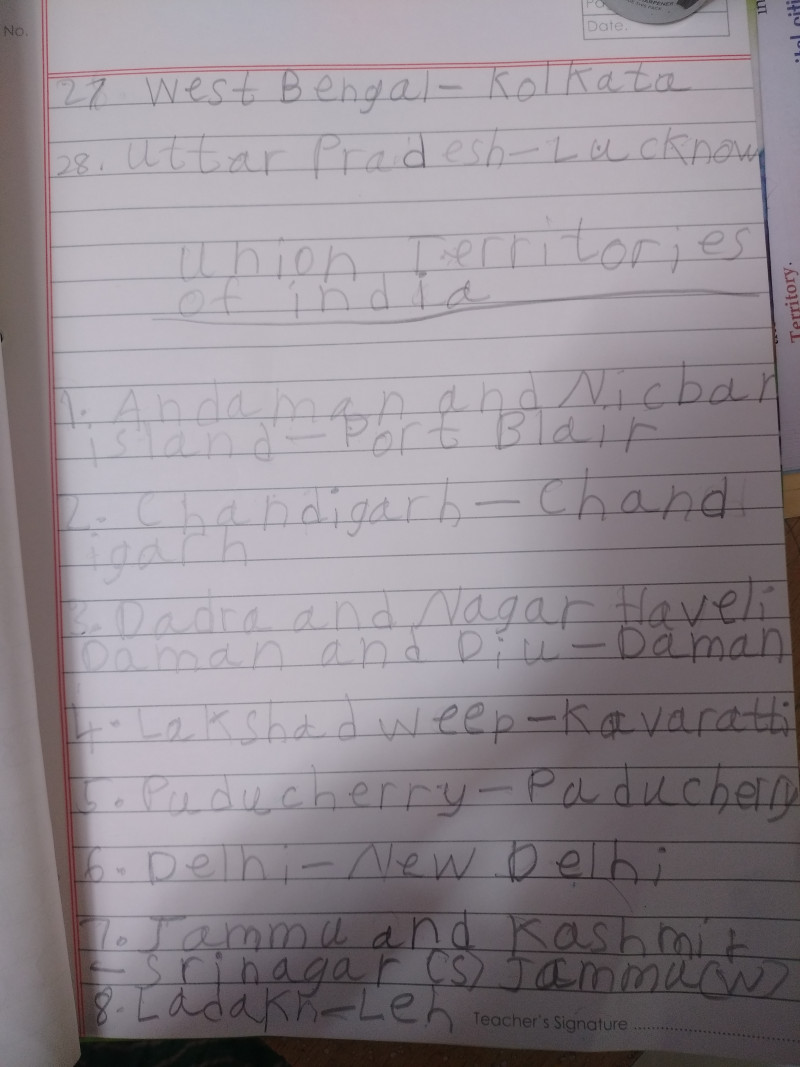 No.
Date.
27. West Bengal - Kolkata
28. Uttar Pradesh - Lucknow
Union Territories
of india
1. Andaman and Nicbar
island - Port Blair
2. Chandigarh - Chand
igarh
3. Dadra and Nagar Haveli
Daman and Diu - Daman
4. Lakshadweep - Kavaratti
5. Puducherry - Paducherry
6. Delhi - New Delhi
7. Jammu and Kashmir
- Srinagar (S) Jammu (W)
8. Ladakh - Leh
Teacher's Signature
Territory.